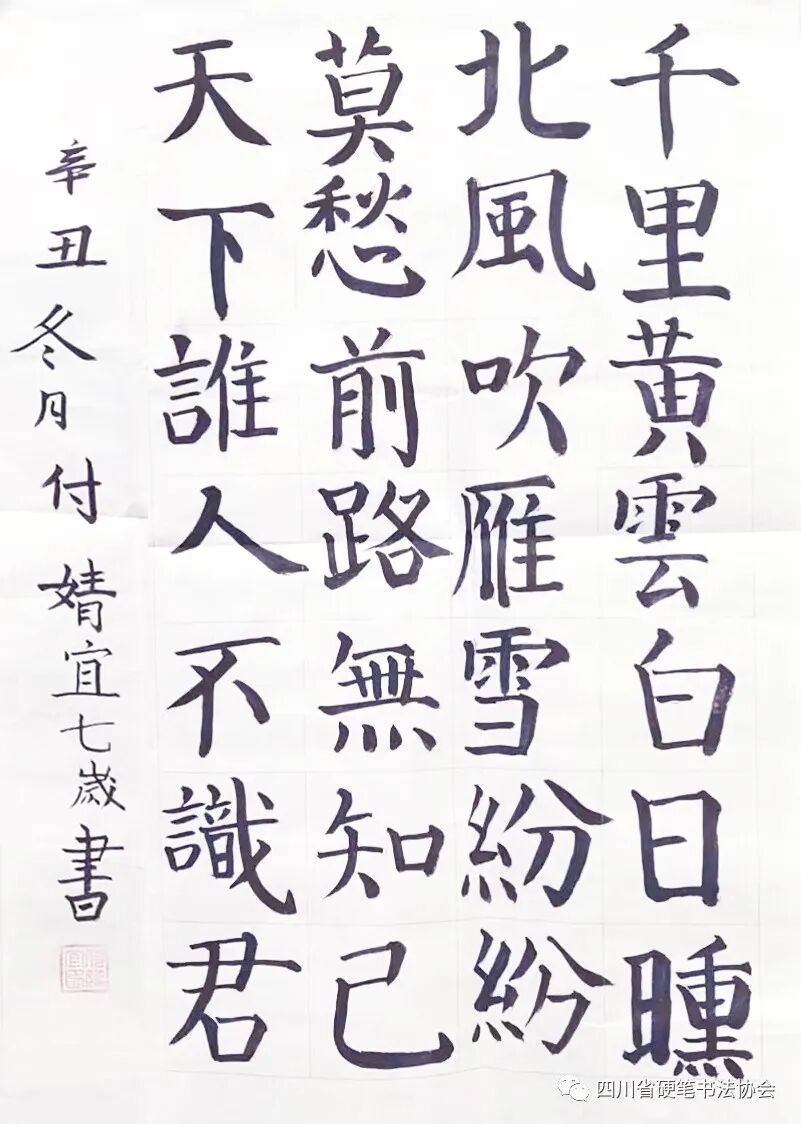 千里黄雲白日曛
北風吹雁雪紛紛
莫愁前路無知己
天下誰人不識君
辛丑冬月付婧宜七歲書
四川省硬笔书法协会